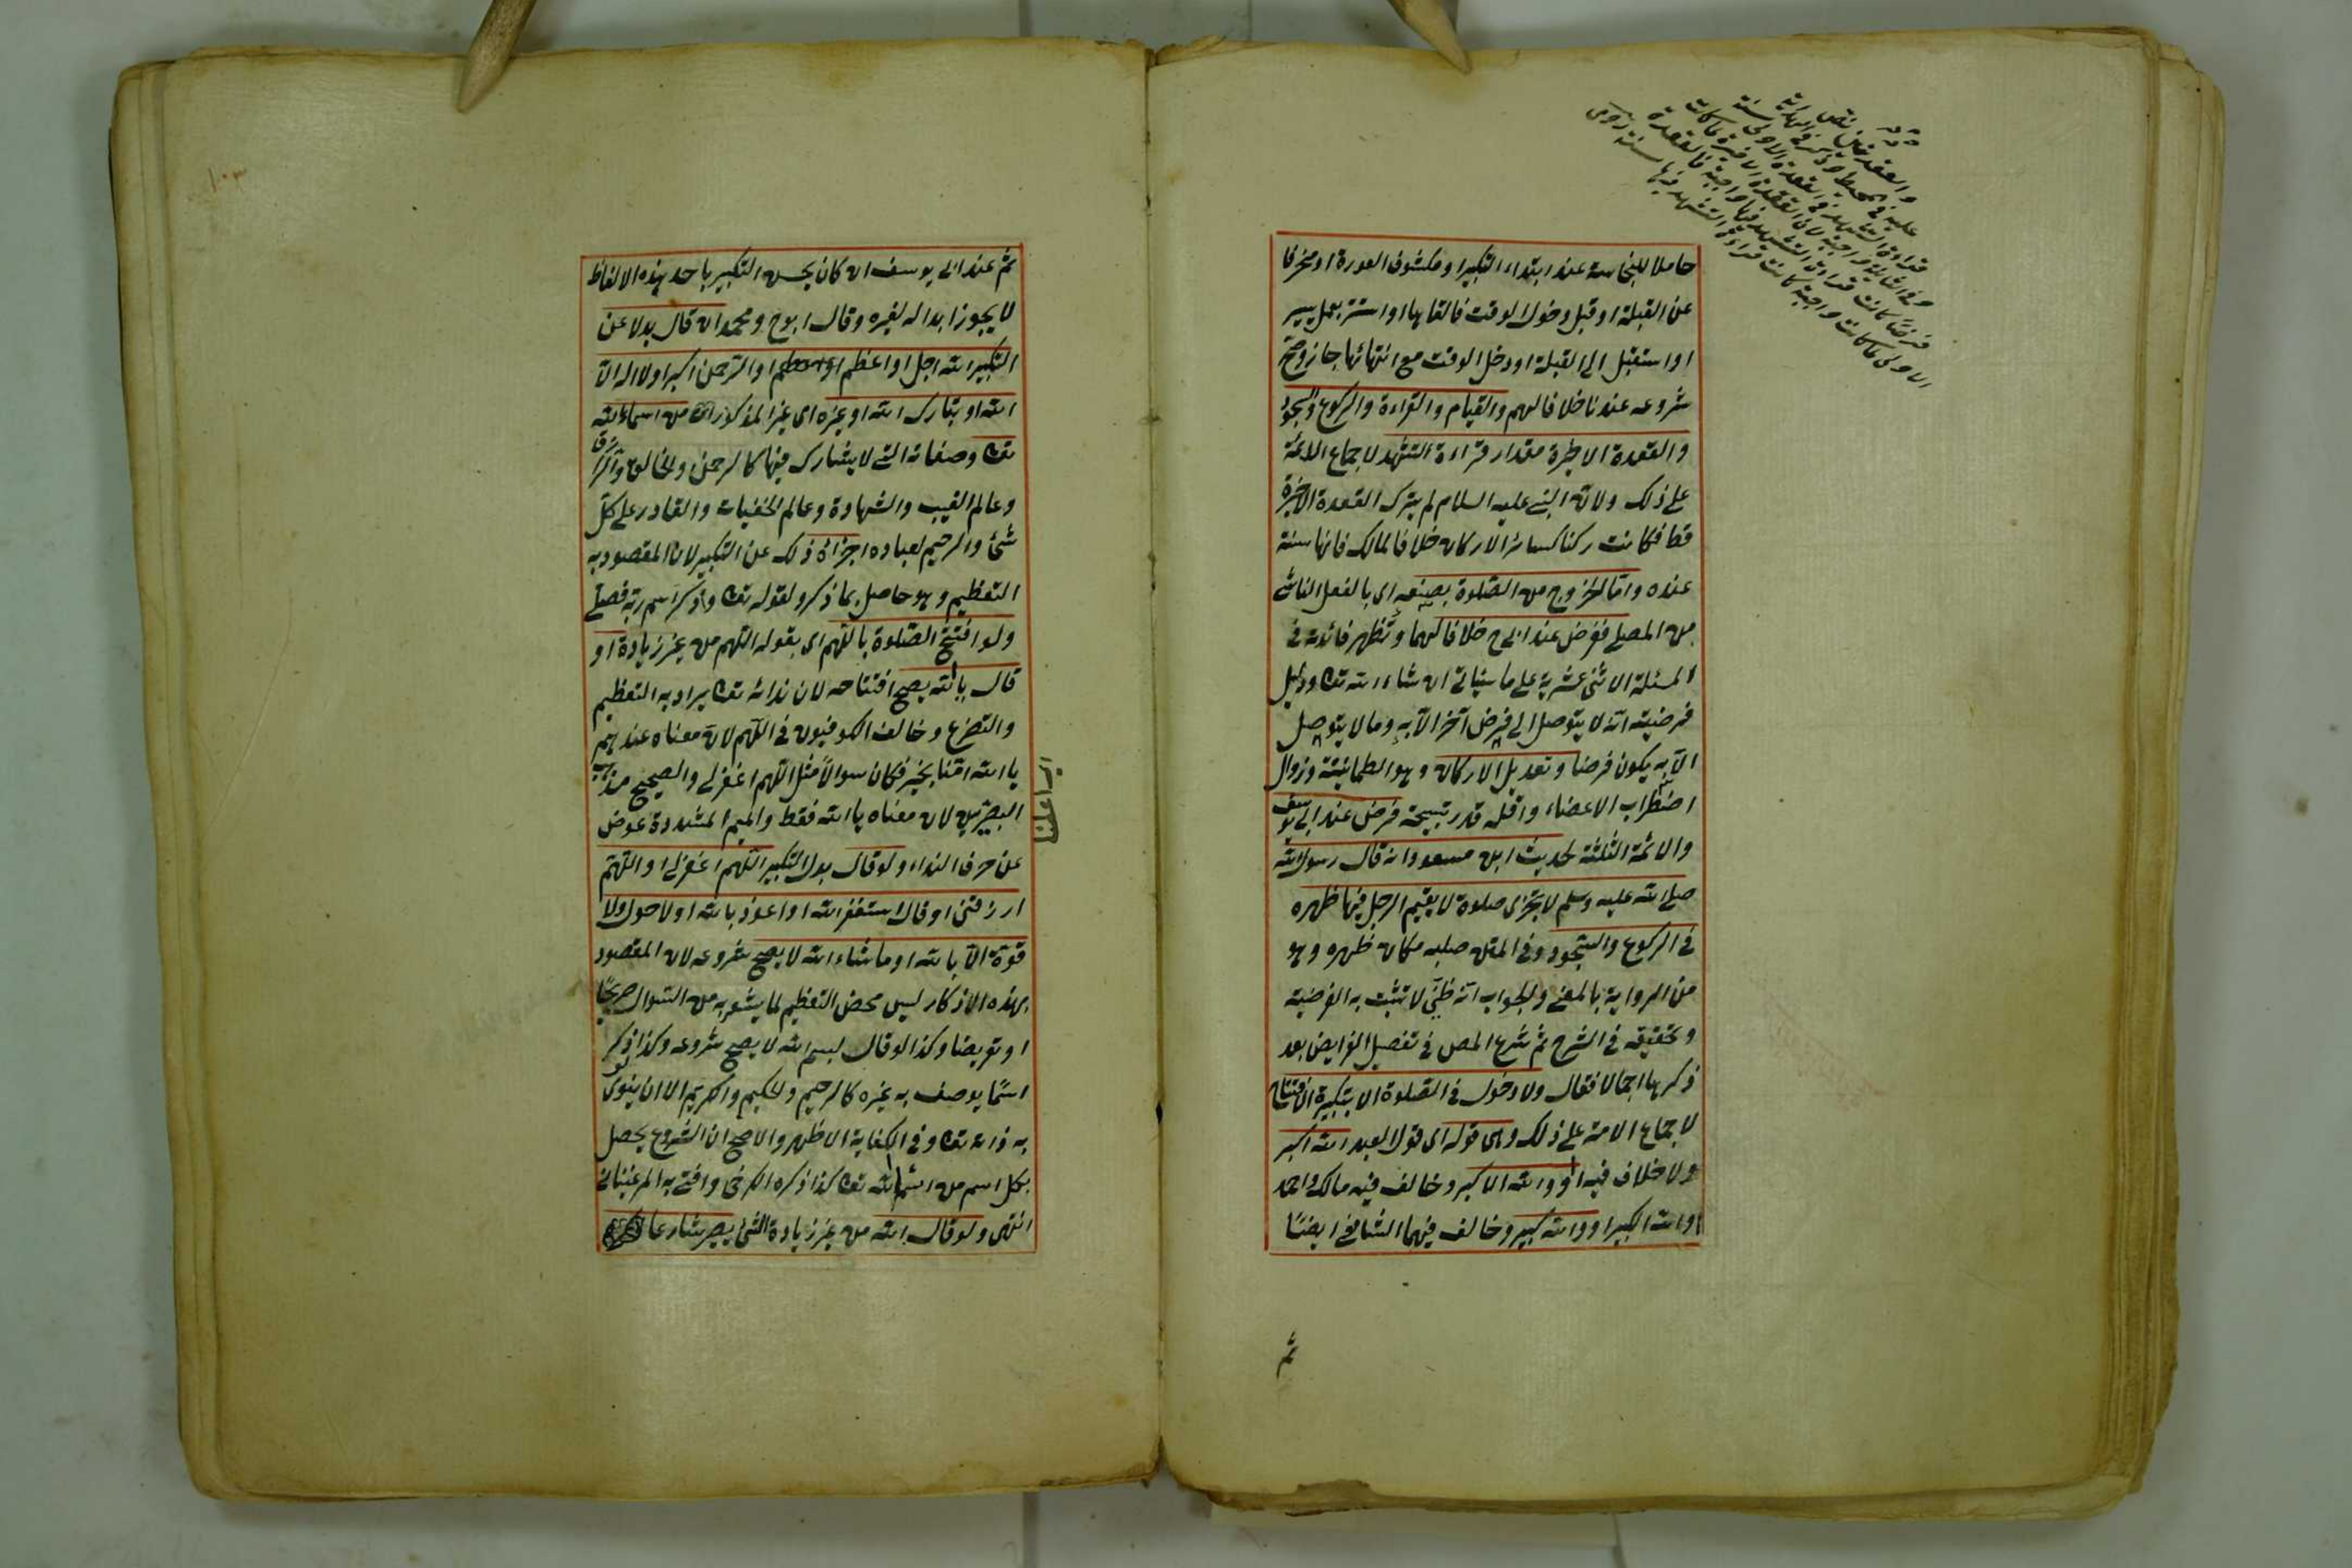 حاملا للنجاسة عند ابتداء التكبير او مكشوف العورة او منحرفا
عن القبلة او قبل دخول الوقت فالقاها او استتر بعمل يسير
او استقبل الى القبلة او دخل الوقت مع انتهائها جاز وصح
شروعه عندنا خلافا لهم والقيام والقراءة والركوع والسجود
والقعدة الاخيرة مقدار قراءة التشهد لاجماع الائمة
على ذلك ولان النبى عليه السلام لم يترك القعدة الاخيرة
قط فكانت ركنا كسائر الاركان خلافا لمالك فانها سنة
عنده واما الخروج من الصلوة بصنعه اى بالفعل الناشى
من المصلى ففرض عند ابى ح خلافا لهما وتظهر فائدته فى
المسئلة الاثنى عشرية على ما سياتى ان شاء الله تعا ودليل
فرضيته انه لا يتوصل الى فرض آخر الا به وما لا يتوصل
الا به يكون فرضا وتعديل الاركان وهو الطمانينة وزوال
اضطراب الاعضاء واقله قدر تسبيحة فرض عند ابى يوسف
والائمة الثلثة لحديث ابن مسعود انه قال رسول الله
صلى الله عليه وسلم لا تجزى صلوة لا يقيم الرجل فيها ظهره
فى الركوع والسجود وفى المتن صلبه مكان ظهره وهو
من الرواية بالمعنى والجواب انه ظنى لا تثبت به الفرضية
وتحقيقه فى الشرح ثم شرع المص فى تفصيل الفرايض بعد
ذكرها اجمالا فقال ولا دخول فى الصلوة الا بتكبيرة الافتتاح
لاجماع الامة على ذلك وهى قوله اى قول العبد الله اكبر
ولا خلاف فيه او الله الاكبر وخالف فيه مالك واحمد
او الله الكبير او الله كبير وخالف فيهما الشافعى ايضا
ثم
ثم عند ابى يوسف ان كان يحسن التكبير باحد هذه الالفاظ
لا يجوز ابداله لغيره وقال ابو ح ومحمد ان قال بدلا عن
التكبير الله اجل او اعظم او الرحمن اكبر او لا اله الا
الله او تبارك الله او غيره اى غير المذكور من اسماء الله
تعا وصفاته التى لا يشارك فيها كالرحمن والخالق والرزاق
وعالم الغيب والشهادة وعالم الخفيات والقادر على كل
شئ والرحيم لعباده اجزائه ذلك عن التكبير لان المقصود به
التعظيم وهو حاصل بما ذكر ولقوله تعا وذكر اسم ربه فصلى
ولو افتتح الصلوة باللهم اى بقوله اللهم من غير زيادة او
قال يا الله يصح افتتاحه لان ندائه تعا يراد به التعظيم
والتضرع وخالف الكوفيون فى اللهم لان معناه عندهم
يا الله امنا بخير فكان سوالا مثل اللهم اغفر لى والصحيح مذهب
البصريين لان معناه يا الله فقط والميم المشددة عوض
عن حرف النداء ولو قال بدل التكبير اللهم اغفر لى او اللهم
ارزقنى او قال استغفر الله او اعوذ بالله او لا حول ولا
قوة الا بالله او ما شاء الله لا يصح شروعه لان المقصود
بهذه الاذكار ليس محض التعظيم لما يشوبه من السوال صريحا
او تعريضا وكذا لو قال بسم الله لا يصح شروعه وكذا لو ذكر
اسما يوصف به غيره كالرحيم والحكيم والكريم الا ان ينوى
به ذاته تعا وفى الكفاية الاظهر والاصح ان الشروع يحصل
بكل اسم من اسماء الله تعا كذا ذكره الكرخى وافتى به المرغينانى
انتهى ولو قال الله من غير زيادة الشئ يصير شارعا